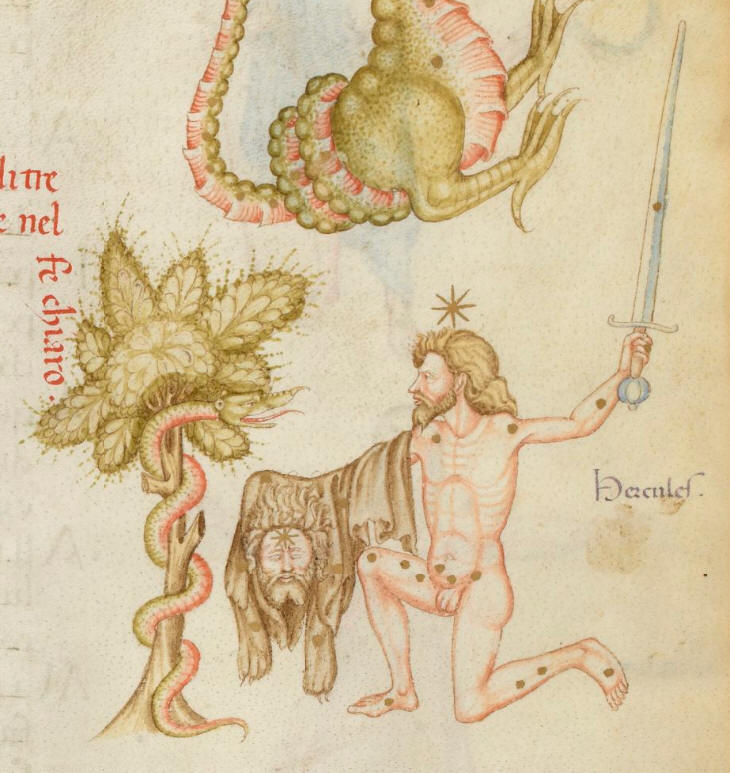 litre
e nel
fe chiaro.
Hercules.